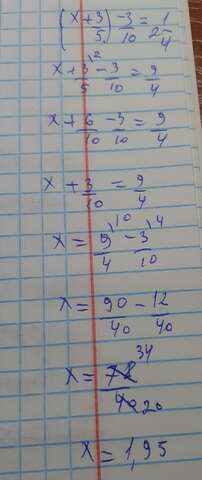 (x + 3/5) - 3/10 = 2 1/4
x + 3/5 ² - 3/10 = 9/4
x + 6/10 - 3/10 = 9/4
x + 3/10 = 9/4
x = 9/4 ¹⁰ - 3/10 ⁴
x = 90/40 - 12/40
x = 78/40 34 20
x = 1,95